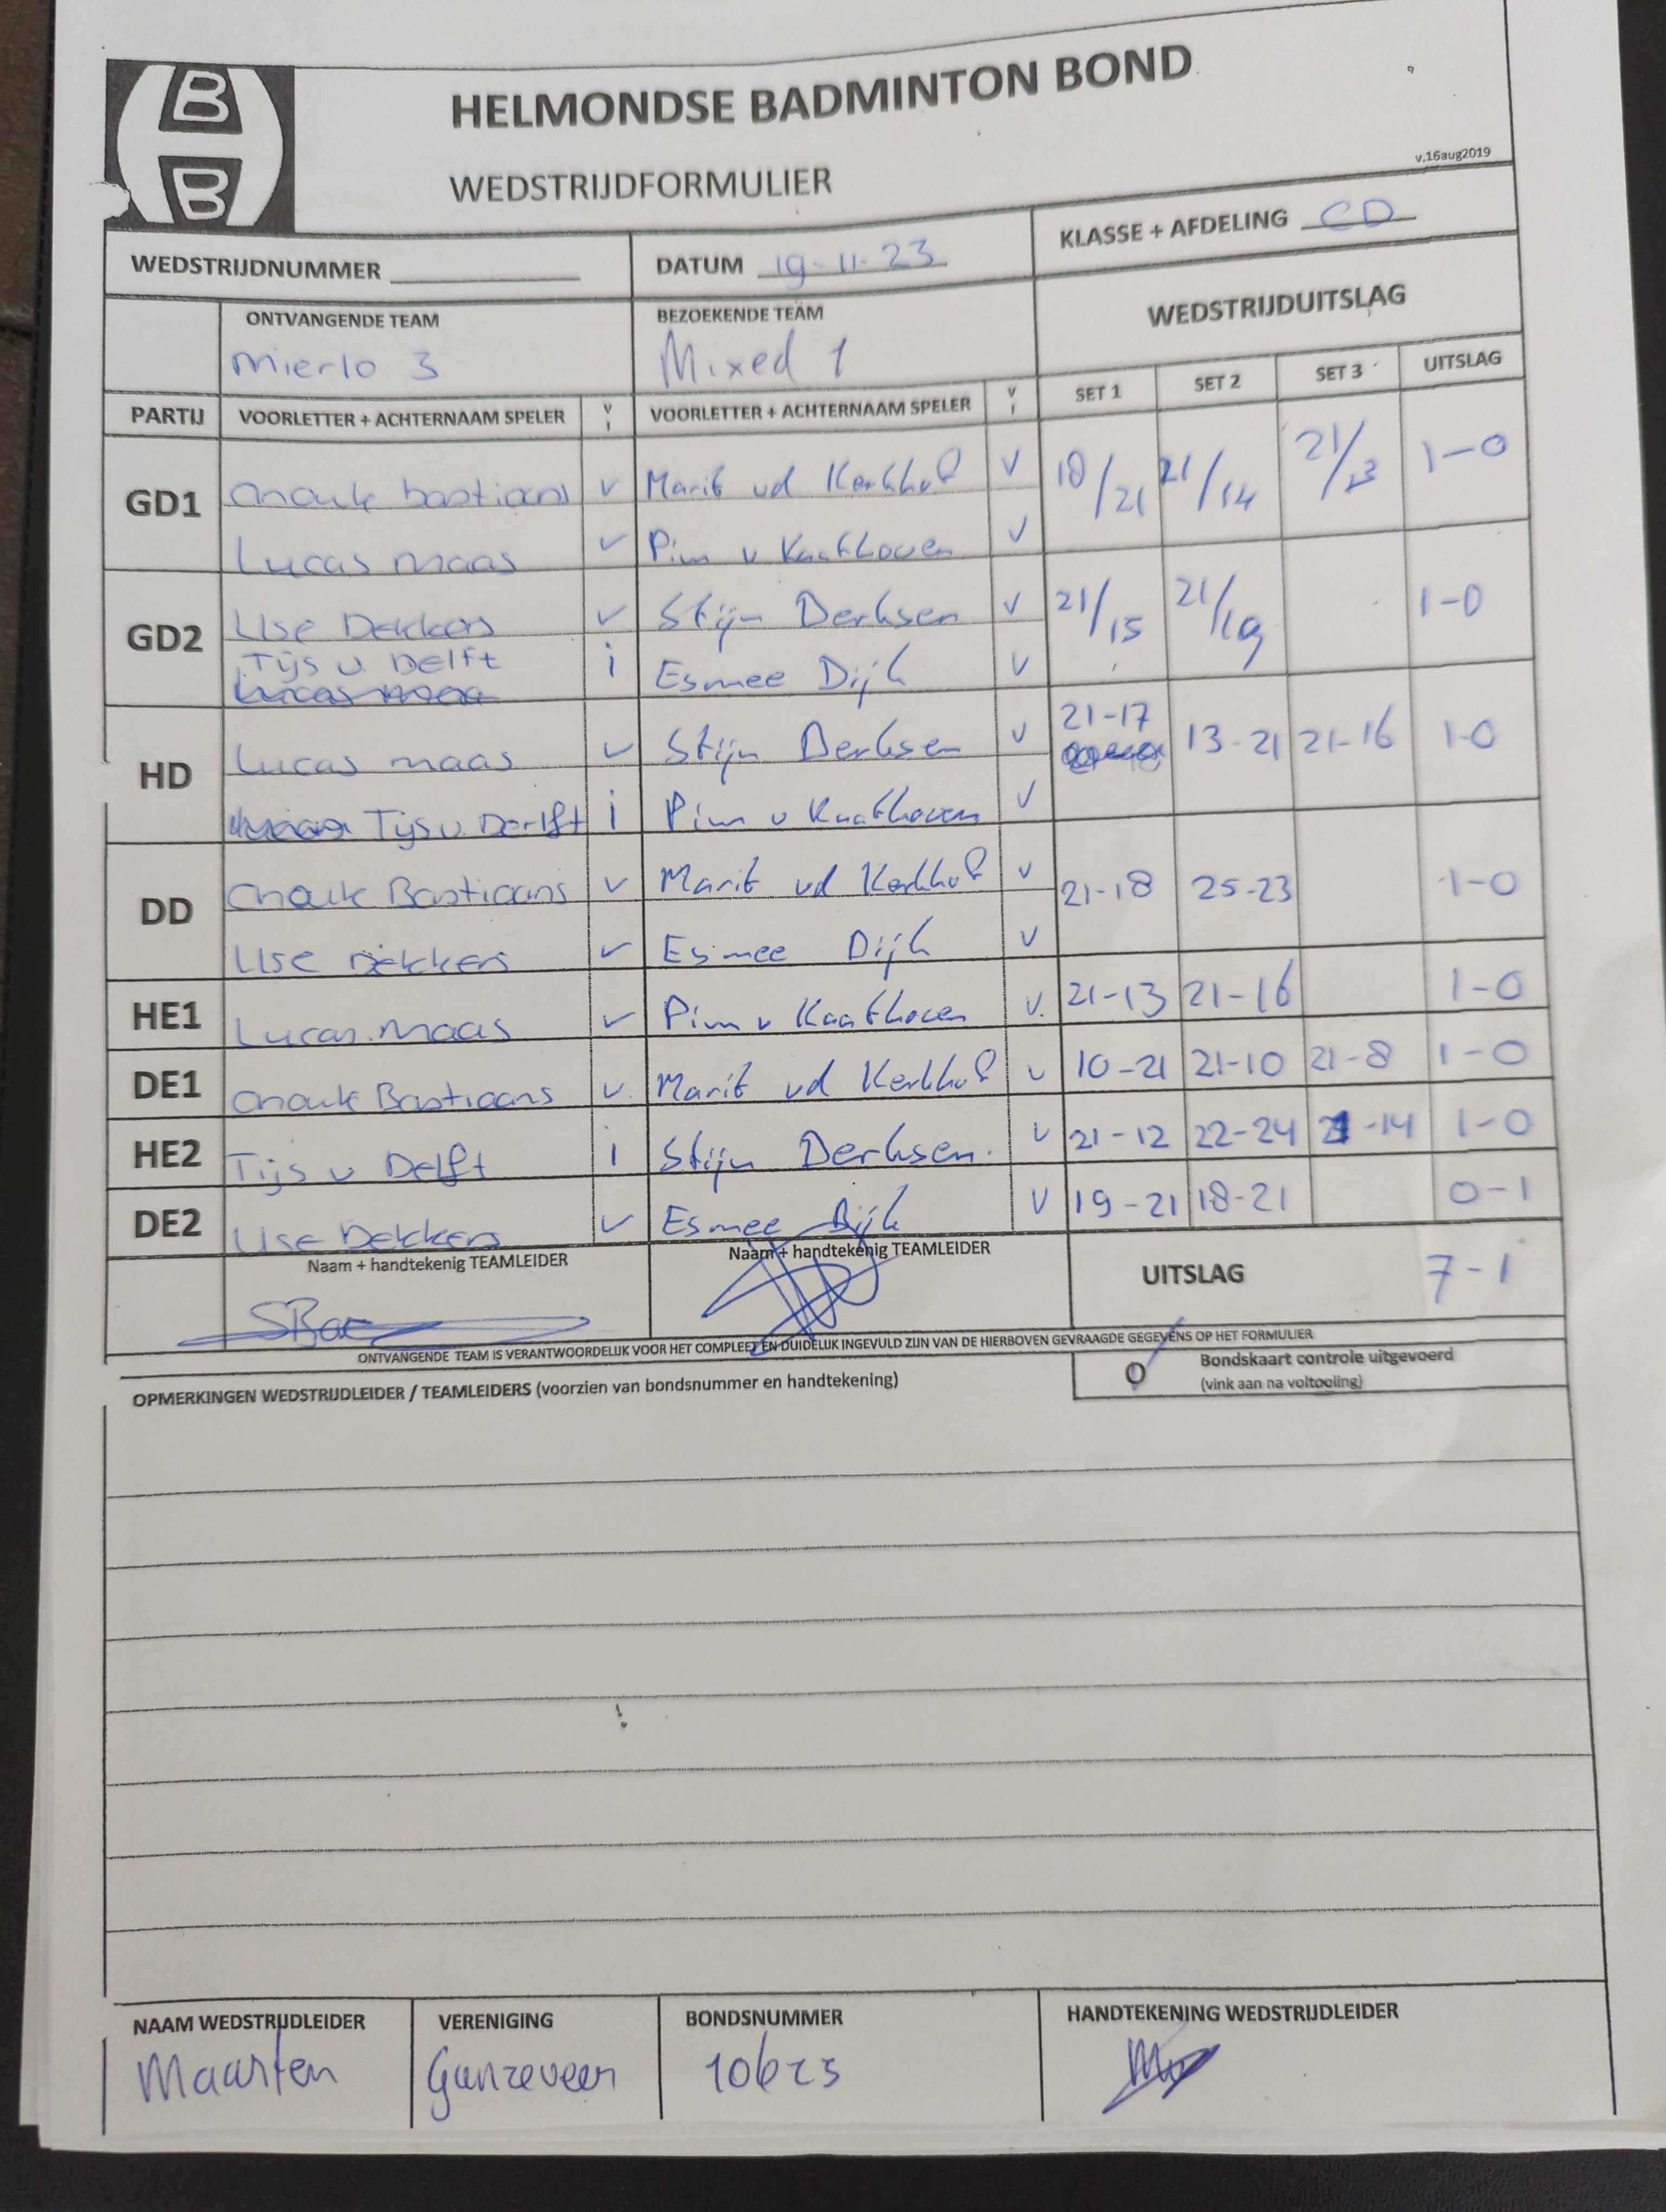 B
B
HELMONDSE BADMINTON BOND
WEDSTRIJDFORMULIER
v.16aug2019
WEDSTRIJDNUMMER
DATUM 19-11-23
KLASSE + AFDELING CD
ONTVANGENDE TEAM
Mierlo 3
BEZOEKENDE TEAM
Mixed 1
WEDSTRIJDUITSLAG
PARTIJ VOORLETTER + ACHTERNAAM SPELER V I VOORLETTER + ACHTERNAAM SPELER V I SET 1 SET 2 SET 3 UITSLAG
GD1 Anouk bastiaans v Marit vd Kerkhof v 18/21 21/14 21/13 1-0
Lucas maas v Pim v Kaathoven v
GD2 Ilse Dekkers v Stijn Derksen v 21/15 21/19 1-0
Tijs v Delft i Esmee Dijk v
HD Lucas maas v Stijn Derksen v 21-17 13-21 21-16 1-0
Tijs v. Derlft i Pim v Kaathoven v
DD Anouk Bastiaans v Marit vd Kerkhof v 21-18 25-23 1-0
Ilse Dekkers v Esmee Dijk v
HE1 Lucas maas v Pim v Kaathoven v. 21-13 21-16 1-0
DE1 Anouk Bastiaans v. Marit vd Kerkhof v 10-21 21-10 21-8 1-0
HE2 Tijs v Delft i Stijn Derksen. v 21-12 22-24 21-14 1-0
DE2 Ilse Dekkers v Esmee Dijk v 19-21 18-21 0-1
Naam + handtekenig TEAMLEIDER
Naam + handtekenig TEAMLEIDER
UITSLAG 7-1
ONTVANGENDE TEAM IS VERANTWOORDELIJK VOOR HET COMPLEET EN DUIDELIJK INGEVULD ZIJN VAN DE HIERBOVEN GEVRAAGDE GEGEVENS OP HET FORMULIER
OPMERKINGEN WEDSTRIJDLEIDER / TEAMLEIDERS (voorzien van bondsnummer en handtekening)
O Bondskaart controle uitgevoerd
(vink aan na voltooling)
NAAM WEDSTRIJDLEIDER
Maarten
VERENIGING
Ganzeveer
BONDSNUMMER
10623
HANDTEKENING WEDSTRIJDLEIDER